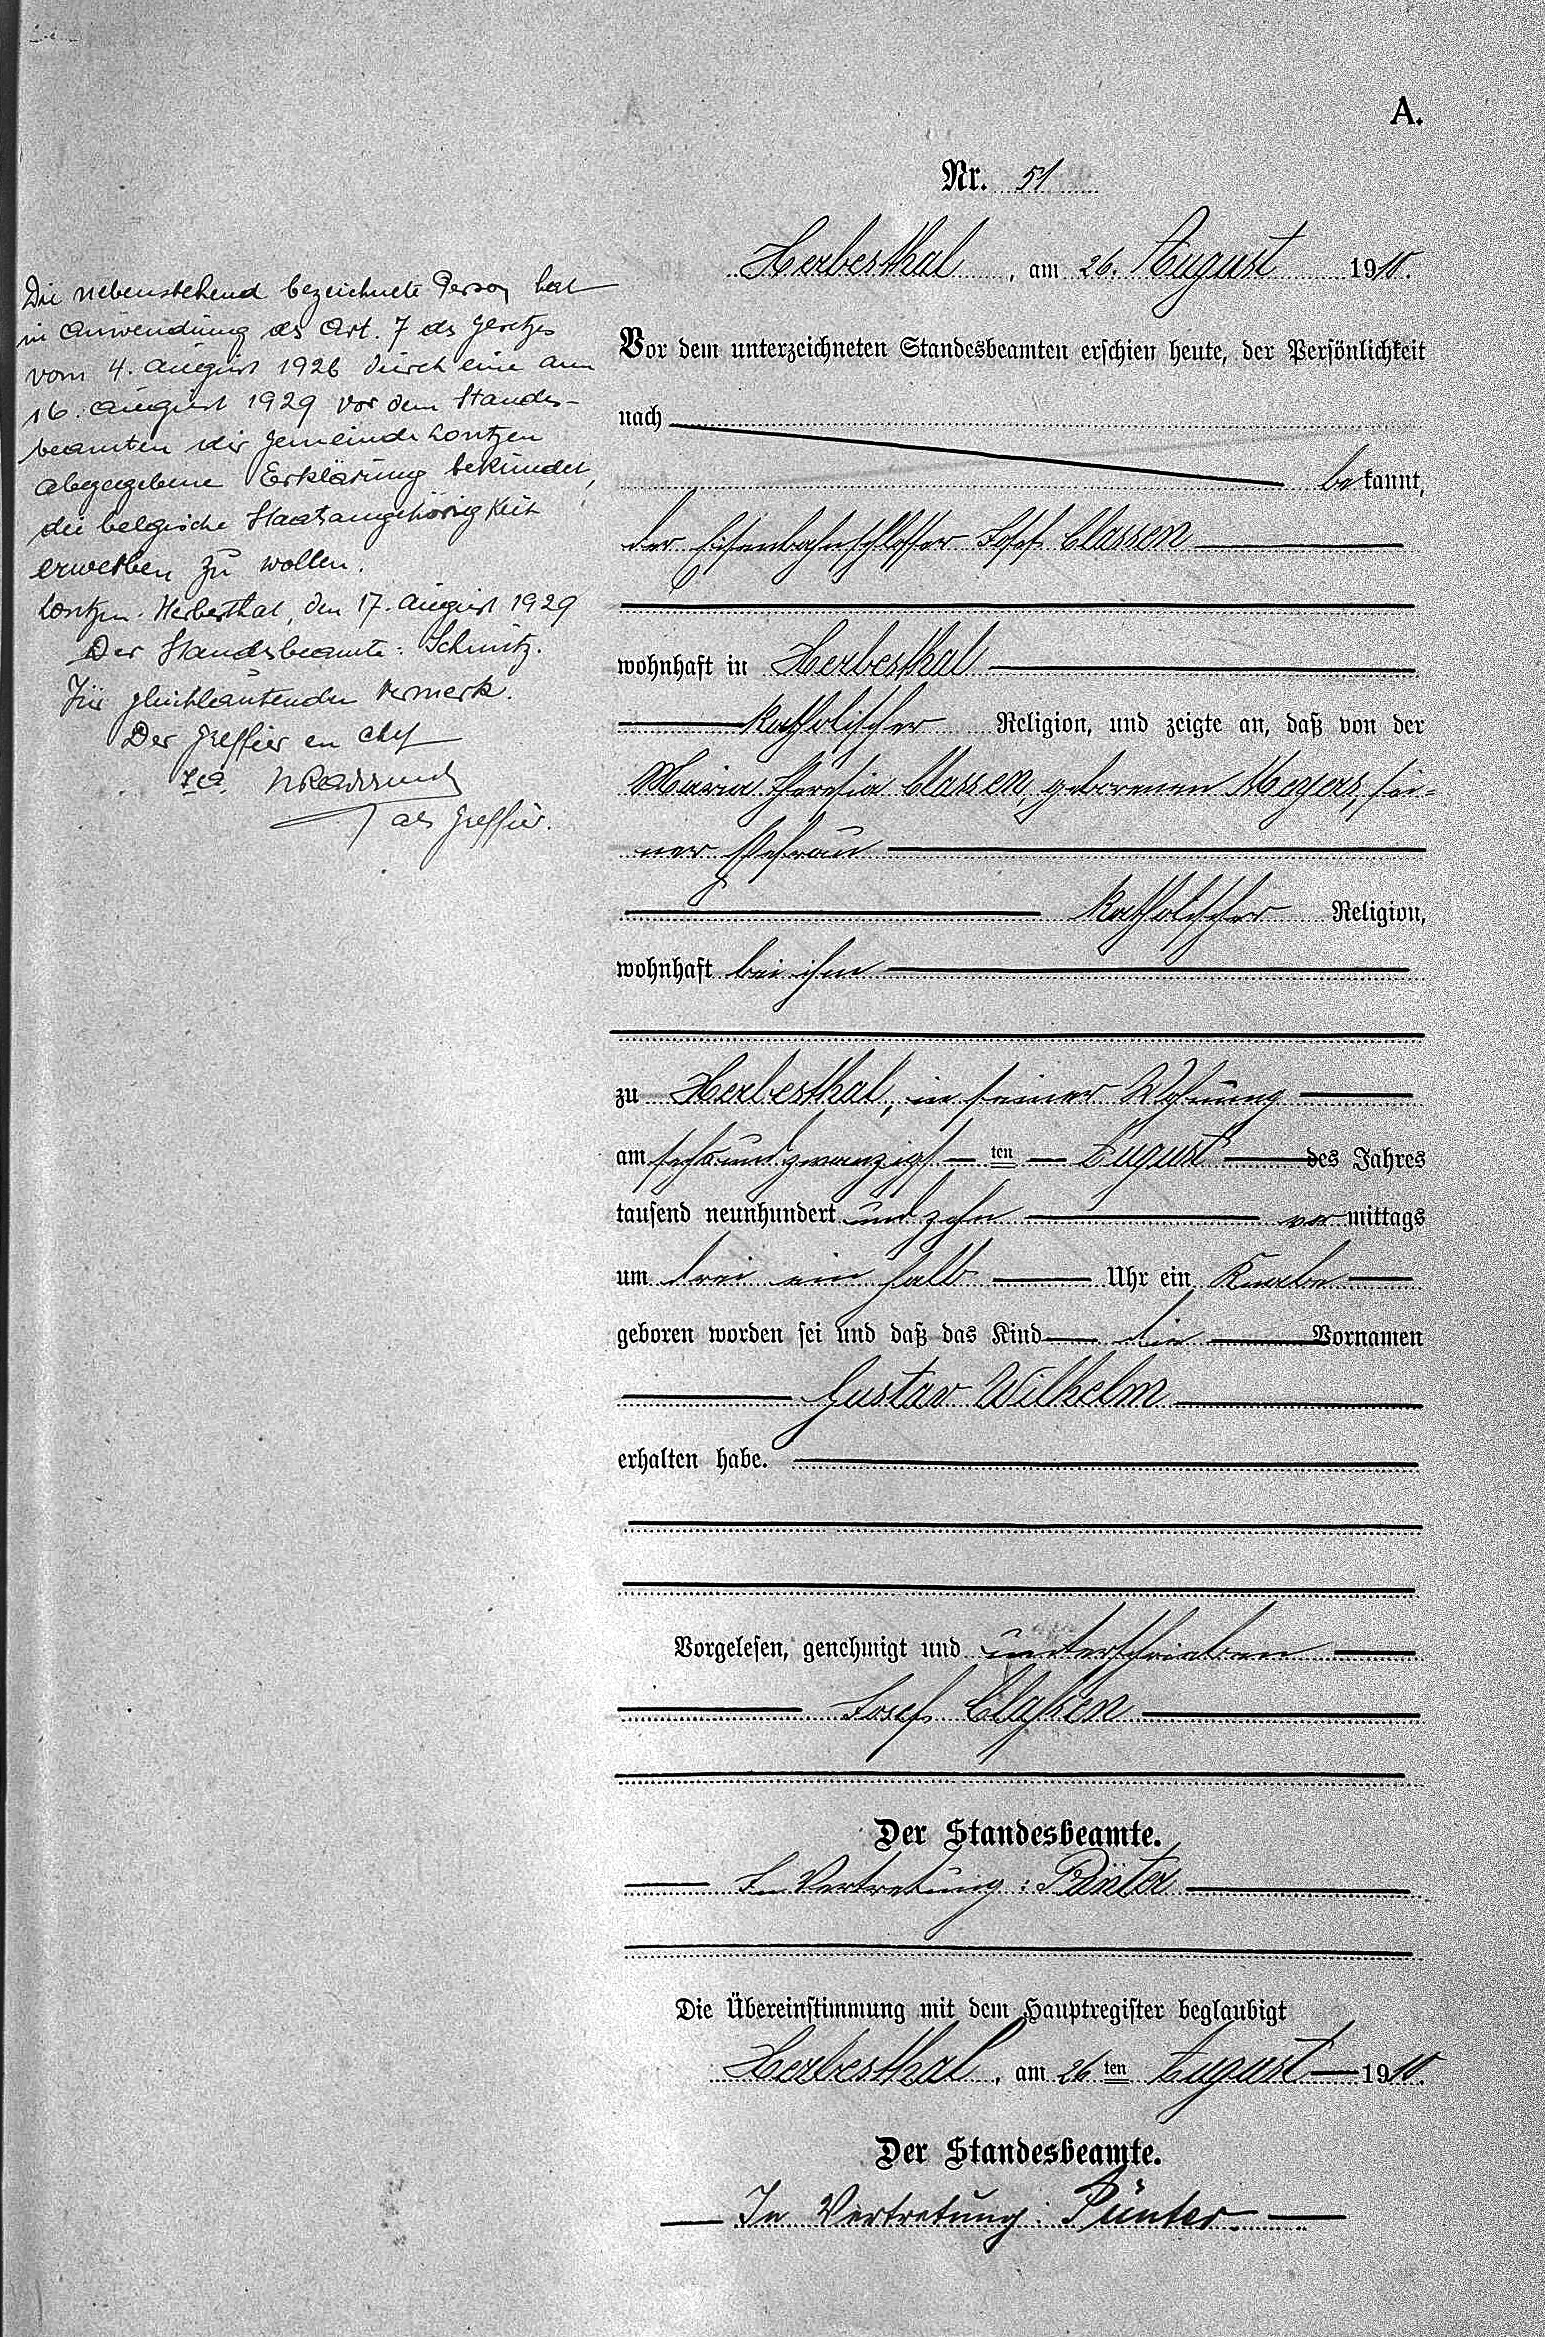 A.
Nr. 51
Herbesthal, am 26. August 1910.
Die nebenstehend bezeichnete Person hat
in Anwendung des Art. 7 des Gesetzes
vom 4. August 1926 durch eine am
16. August 1929 vor dem Standes-
beamten der Gemeinde Lontzen
abgegebene Erklärung bekundet,
die belgische Staatsangehörigkeit
erwerben zu wollen.
Lontzen-Herbesthal, den 17. August 1929
Der Standesbeamte: Schmitz.
Für gleichlautenden Vermerk.
Der Greffier en chef
als Greffier.
Vor dem unterzeichneten Standesbeamten erschien heute, der Persönlichkeit
nach
be kannt,
der Eisenbahnschlosser Josef Classen
wohnhaft in Herbesthal
katholischer Religion, und zeigte an, daß von der
Maria Theresia Classen, geborenen Meyers, sei-
ner Ehefrau
katholischer Religion,
wohnhaft bei ihm
zu Herbesthal, in seiner Wohnung
am sechsundzwanzigst ten August des Jahres
tausend neunhundert und zehn vor mittags
um drei ein halb Uhr ein Knabe
geboren worden sei und daß das Kind die Vornamen
Gustav Wilhelm
erhalten habe.
Vorgelesen, genehmigt und unterschrieben
Josef Claßen
Der Standesbeamte.
In Vertretung: Pünter
Die Übereinstimmung mit dem Hauptregister beglaubigt
Herbesthal, am 26 ten August 1910.
Der Standesbeamte.
In Vertretung: Pünter.